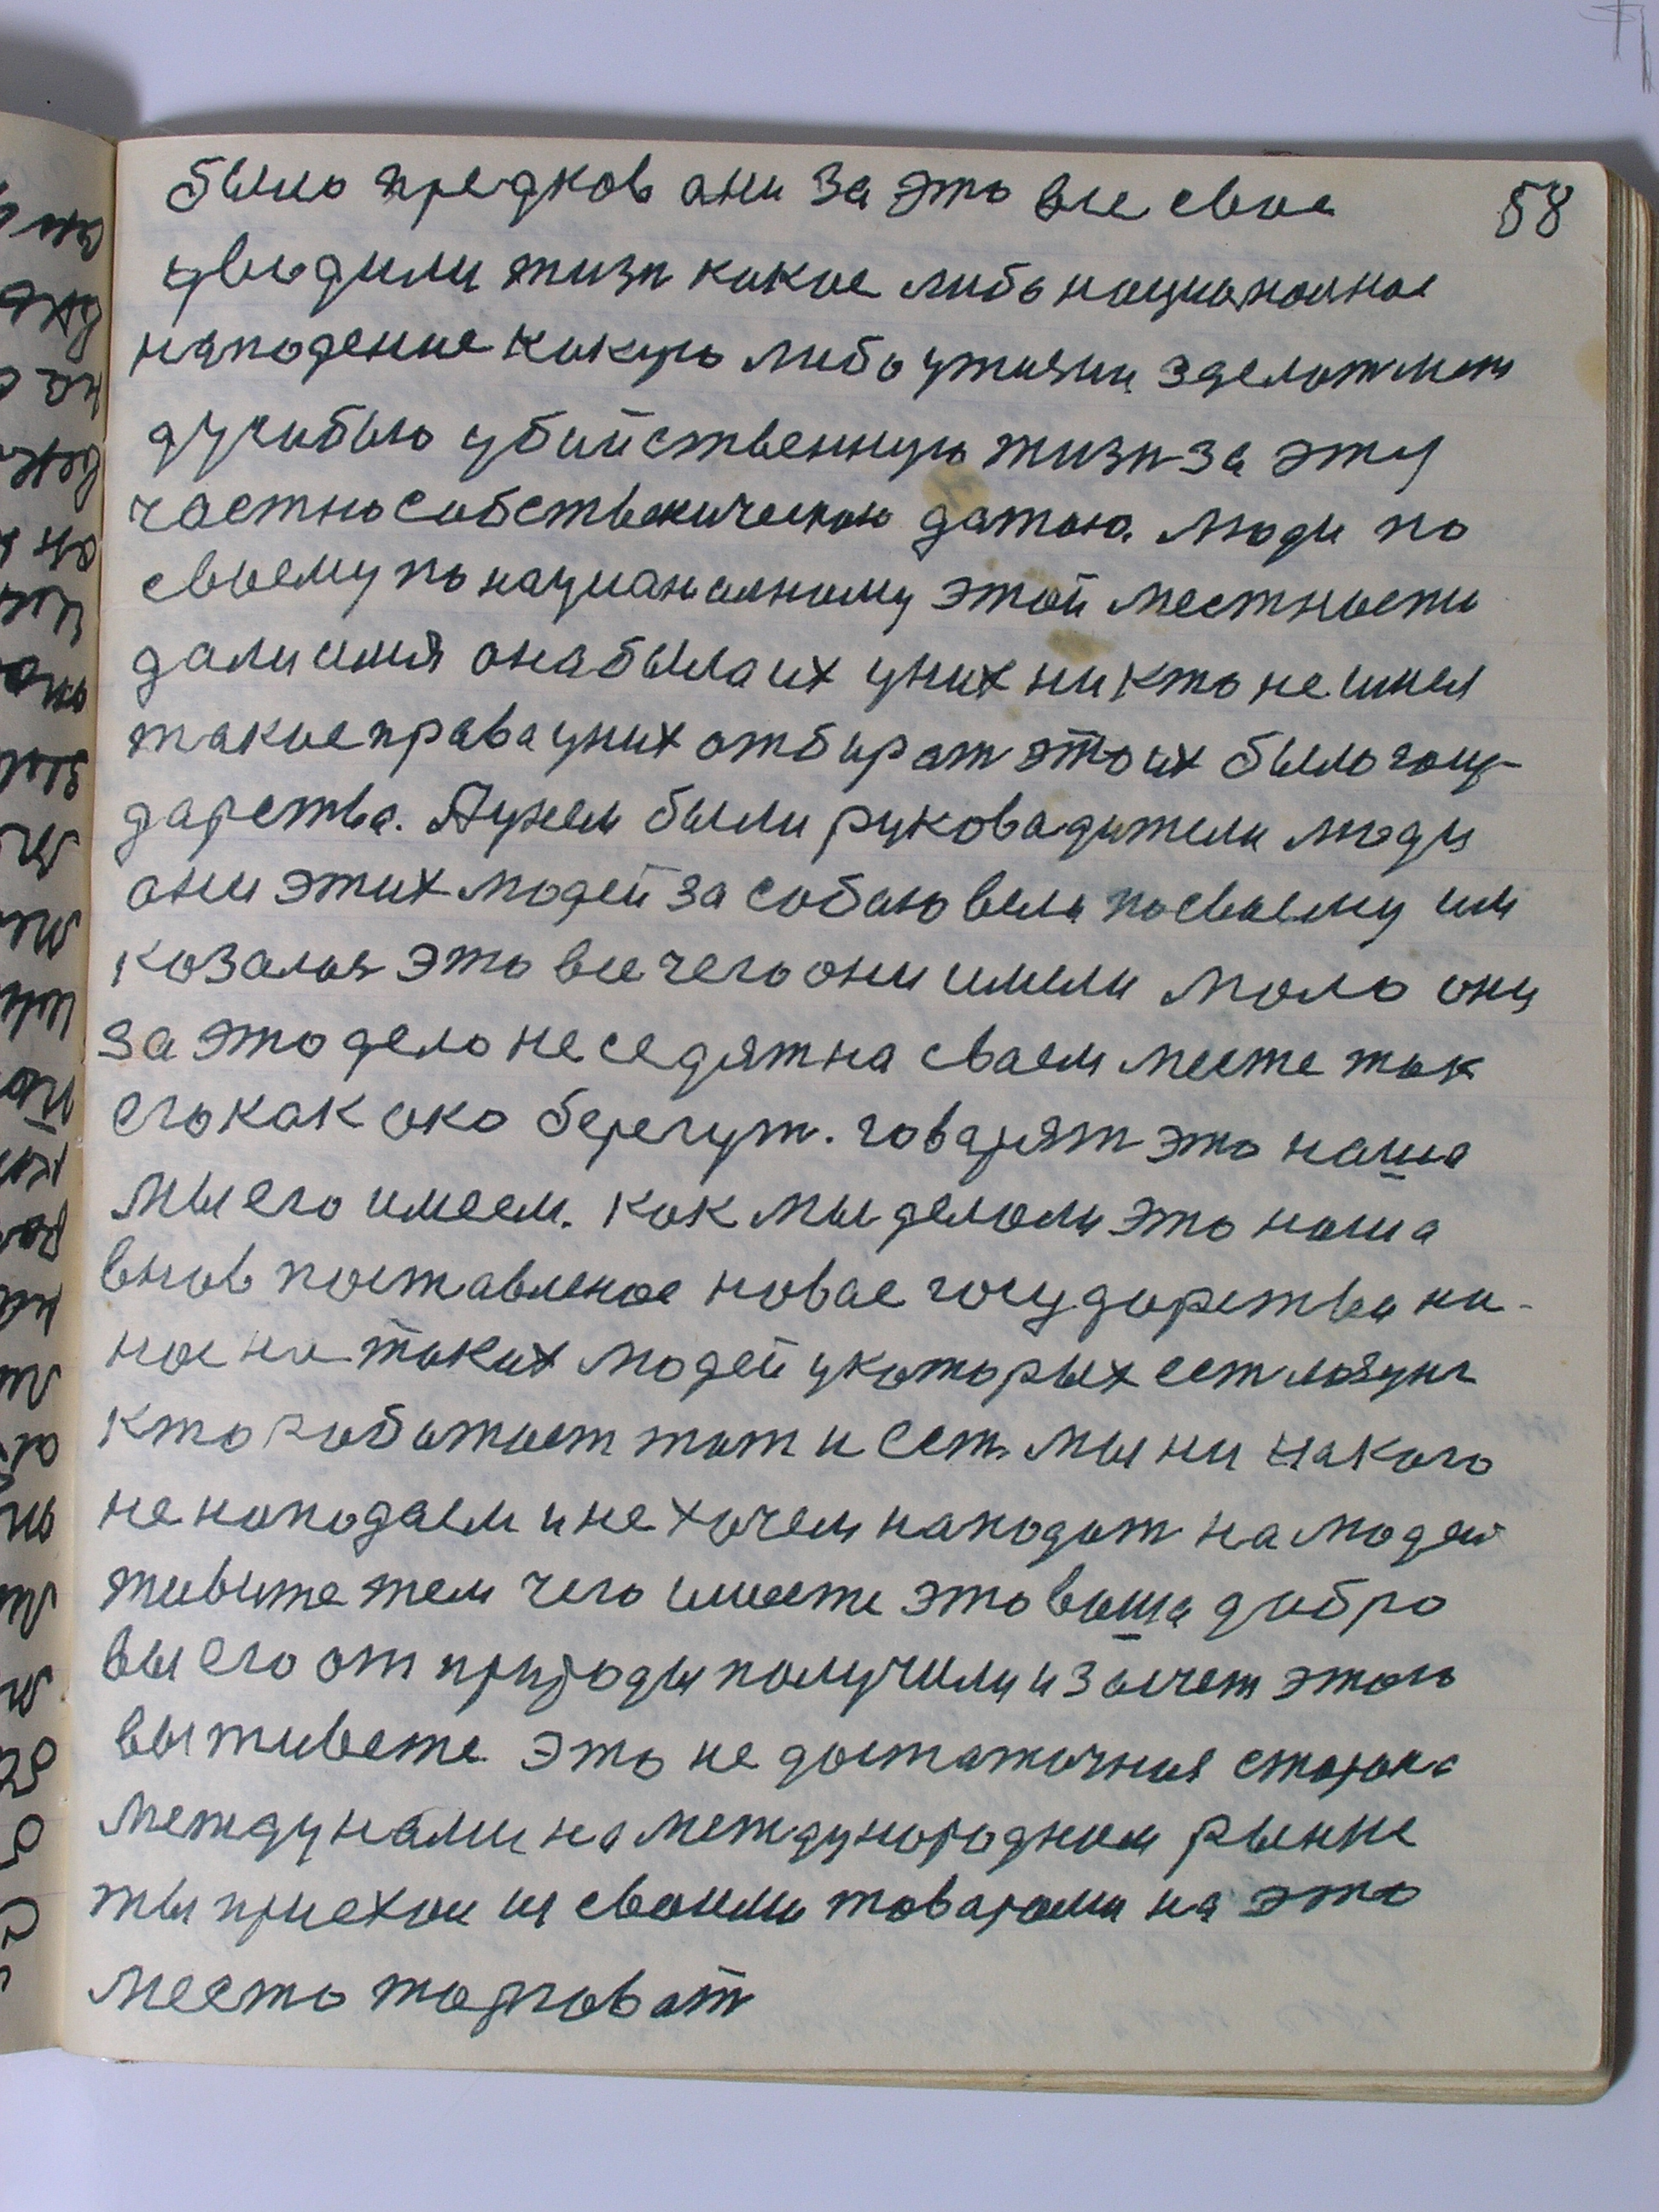 было предков они за это все свае 58
уводили жизн какое либо национолное
нападение какую либо ужизни зделат мет
дучобыло убийственную жизн за эту
частнособственическою датою. Люди по
своему по национолному этой местности
дали имя она была их у них ни кто не имел
такие права у них отбират это их было госу-
дарства. А у нем были руковадители люди
они этих людей за собаю вели по своему им
козалося это все чего они имели мало они
за это дело не седят на сваем месте так
его как око берегут. говарят это наша
мы его имеем. Как мы делали это наша
внов поставленое новае государства на-
ное на таких людей у которых ест лозунг
кто работает тот и ест. мы ни на кого
не нападаем и не хочем нападат на людей
живите тем чего имеете это ваша добро
вы его от природы получили и засчет этого
вы живете. Это не достаточная сторона
между нами на международном рынке
ты приехал со своими товарами на это
место торговат